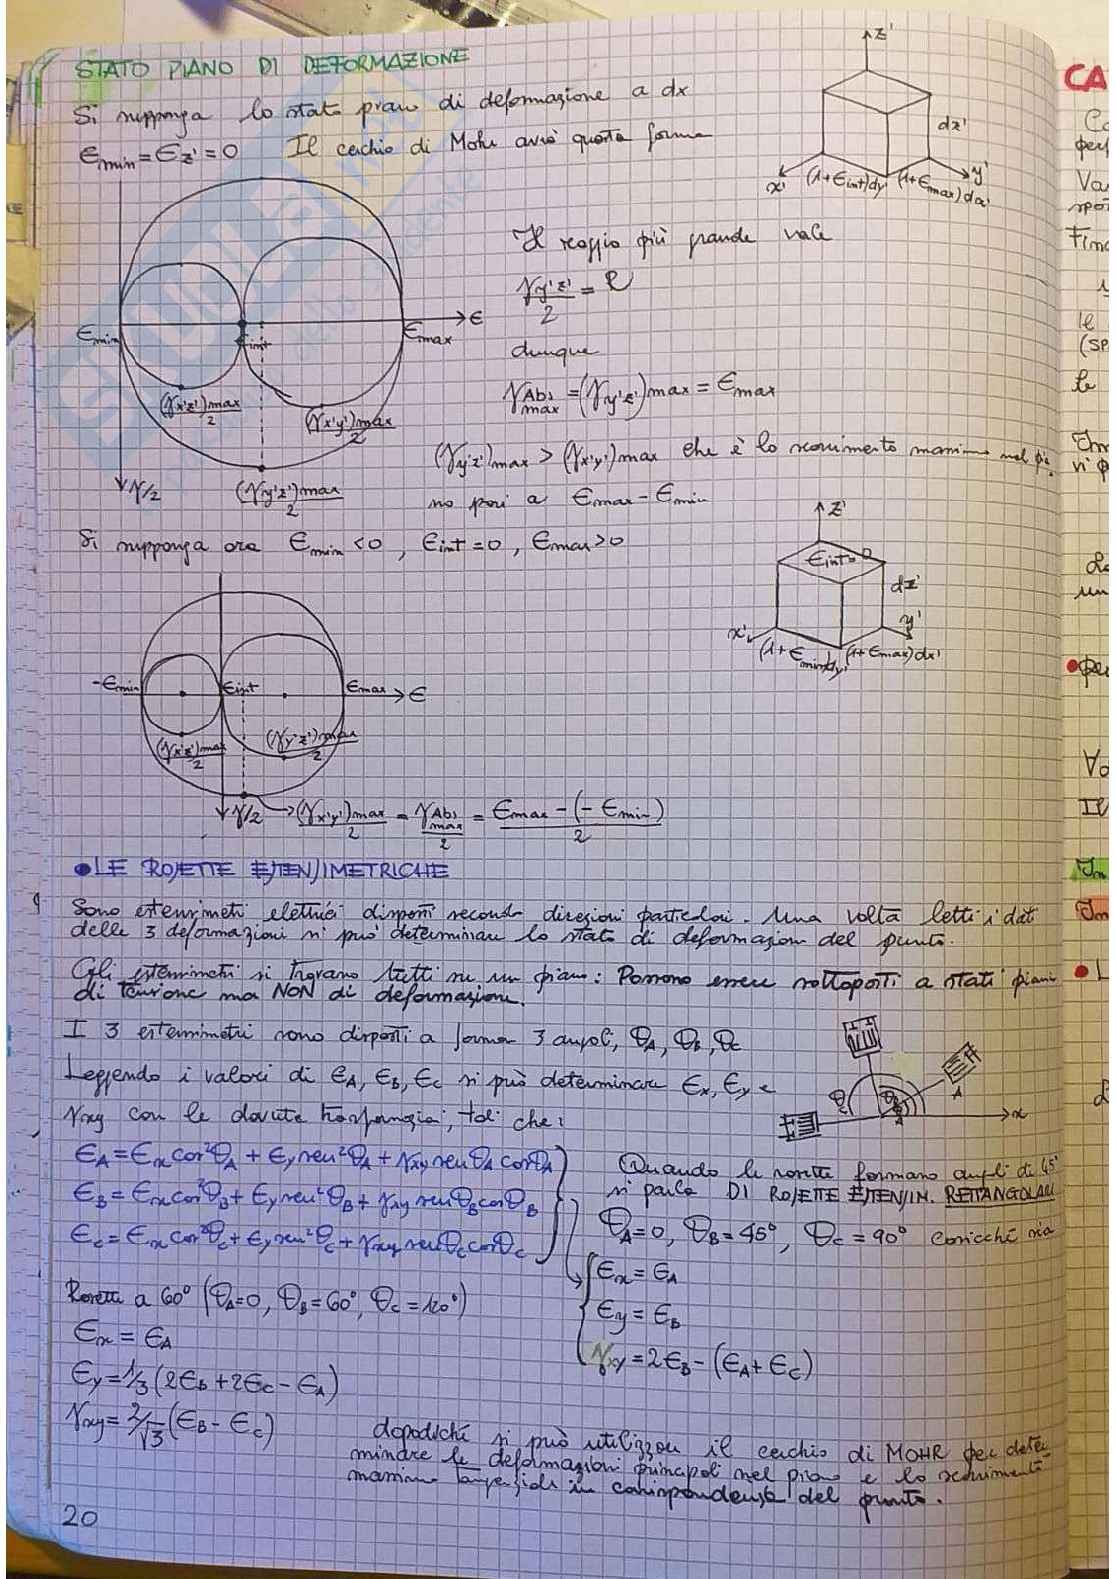 STATO PIANO DI DEFORMAZIONE
Si supponga lo stato piano di deformazione a dx
Ɛmin = Ɛz' = 0 Il cerchio di Mohr avrà questa forma
z'
dz'
x'
(1+Ɛint)dy'
(1+Ɛmax)dx'
y'
Il raggio più grande vale
γy'z'/2 = R
dunque
γAbs max = (γy'z')max = Ɛmax
Ɛmin
Ɛint
Ɛmax
Ɛ
(γx'z')max/2
(γx'y')max/2
(γy'z')max > (γx'y')max che è lo scorrimento massimo nel pia
γ/2
(γy'z')max/2
no pari a Ɛmax - Ɛmin
Si supponga ora Ɛmin < 0, Ɛint = 0, Ɛmax > 0
z'
Ɛint = 0
dz'
x'
y'
(1+Ɛmin)dy'
(1+Ɛmax)dx'
-Ɛmin
Ɛint
Ɛmax
Ɛ
(γx'z')max/2
(γy'z')max/2
γ/2 → (γx'y')max/2 = γAbs max/2 = Ɛmax - (- Ɛmin)/2
• LE ROSETTE ESTENSIMETRICHE
Sono estensimetri elettrici disposti secondo direzioni particolari. Una volta letti i dati
delle 3 deformazioni si può determinare lo stato di deformazion del punto.
Gli estensimetri si trovano tutti su un piano: Possono essere sottoposti a stati piani
di tensione ma NON di deformazione.
I 3 estensimetri sono disposti a formar 3 angoli, θA, θB, θC
Leggendo i valori di ƐA, ƐB, ƐC si può determinare Ɛx, Ɛy e
γxy con le dovute trasformazioni, tali che:
A
x
ƐA = Ɛx cos²θA + Ɛy sen²θA + γxy senθA cosθA
ƐB = Ɛx cos²θB + Ɛy sen²θB + γxy senθB cosθB
ƐC = Ɛx cos²θC + Ɛy sen²θC + γxy senθC cosθC
Quando le rosette formano angoli di 45°
si parla DI ROSETTE ESTENSIM. RETTANGOLARI
θA = 0, θB = 45°, θC = 90° cosicché sia
Ɛx = ƐA
Ɛy = ƐB
γxy = 2ƐB - (ƐA + ƐC)
Rosetta a 60° (θA = 0, θB = 60°, θC = 120°)
Ɛx = ƐA
Ɛy = 1/3 (2ƐB + 2ƐC - ƐA)
γxy = 2/√3 (ƐB - ƐC)
dopodiché si può utilizzare il cerchio di MOHR per deter
minare le deformazioni principali nel piano e lo scorrimento
massimo in corrispondenza del punto.
20
CA